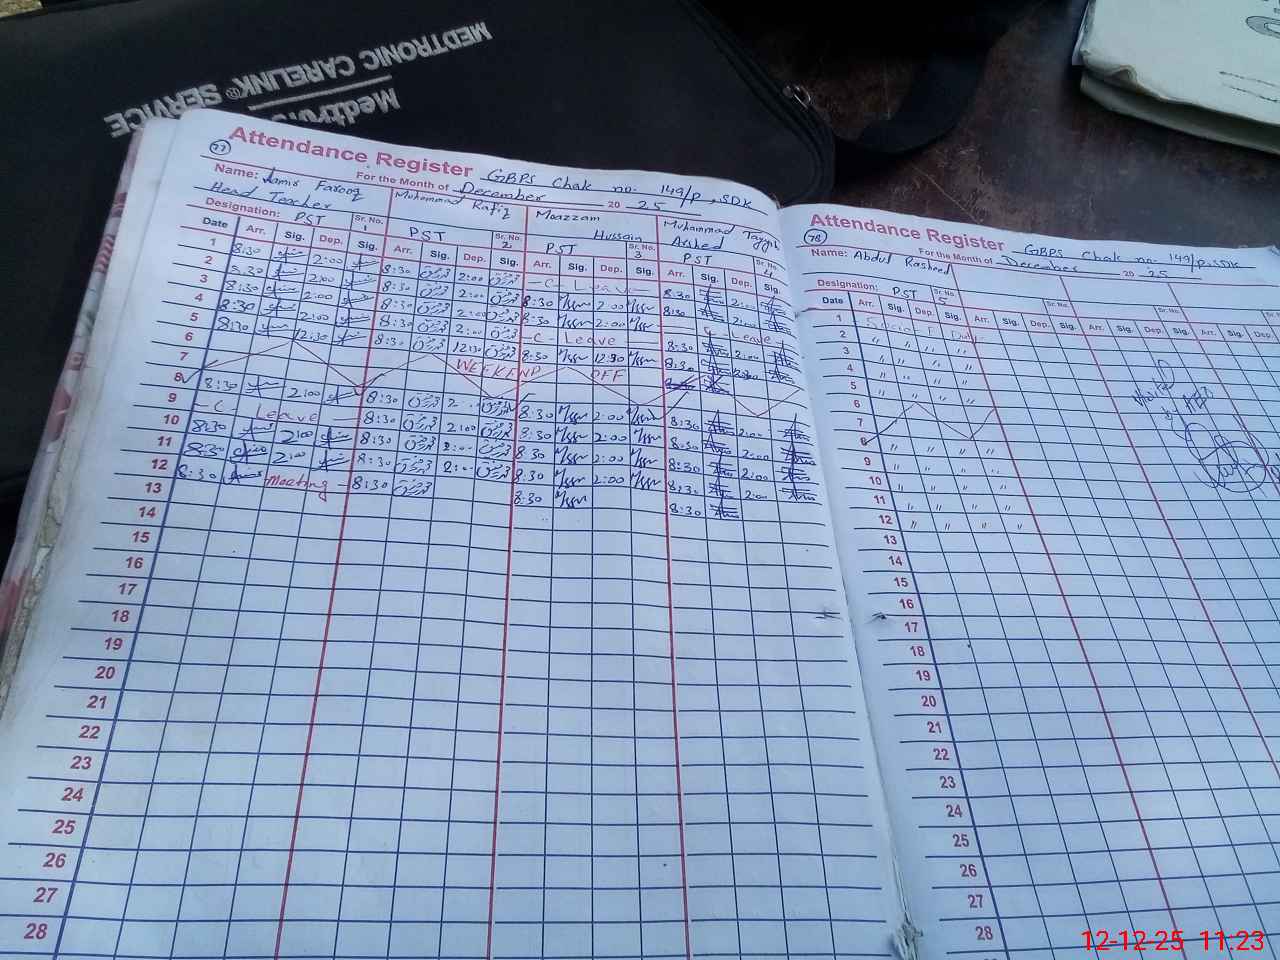 MEDTRONIC CARELINK® SERVICE
Medtronic
77
Attendance Register GBPS Chak no. 149/P, SDK
For the Month of December 20 25
Name: Jamir Farooq Muhammad Rafiq Moazzam Hussain Muhammad Tayyib Arshed
Head Teacher
Designation: PST Sr. No. 1 PST Sr. No. 2 PST Sr. No. 3 PST Sr. No. 4
Date Arr. Sig. Dep. Sig. Arr. Sig. Dep. Sig. Arr. Sig. Dep. Sig. Arr. Sig. Dep. Sig.
1 8:30 2:00 8:30 2:00 - C - Leave - 8:30 2:00
2 8:30 2:00 8:30 2:00 8:30 2:00 8:30 2:00
3 8:30 2:00 8:30 2:00 8:30 2:00 C - Leave
4 8:30 2:00 8:30 2:00 - C - Leave 8:30 2:00
5 8:30 12:30 8:30 12:30 8:30 12:30 8:30
6 WEEKEND OFF
7
8 8:30 2:00 8:30 2:00 8:30 2:00 8:30 2:00
9 - C - Leave - 8:30 2:00 8:30 2:00 8:30 2:00
10 8:30 2:00 8:30 2:00 8:30 2:00 8:30 2:00
11 8:30 2:00 8:30 2:00 8:30 2:00 8:30 2:00
12 8:30 Meeting - 8:30 8:30 8:30
13
14
15
16
17
18
19
20
21
22
23
24
25
26
27
28
78
Attendance Register GBPS Chak no. 149/P, SDK
For the Month of December 20 25
Name: Abdul Rasheed
Designation: PST Sr. No. 5 Sr. No. Sr. No.
Date Arr. Sig. Dep. Sig. Arr. Sig. Dep. Sig. Arr. Sig. Dep. Sig.
1 Special Duty
2 " " " "
3 " " " "
4 " " " "
5 " " " "
6
7
8 " " " "
9 " " " "
10 " " " "
11 " " " "
12 " " " "
13
14
15
16
17
18
19
20
21
22
23
24
25
26
27
28
Visited by AEO
12-12-25 11:23